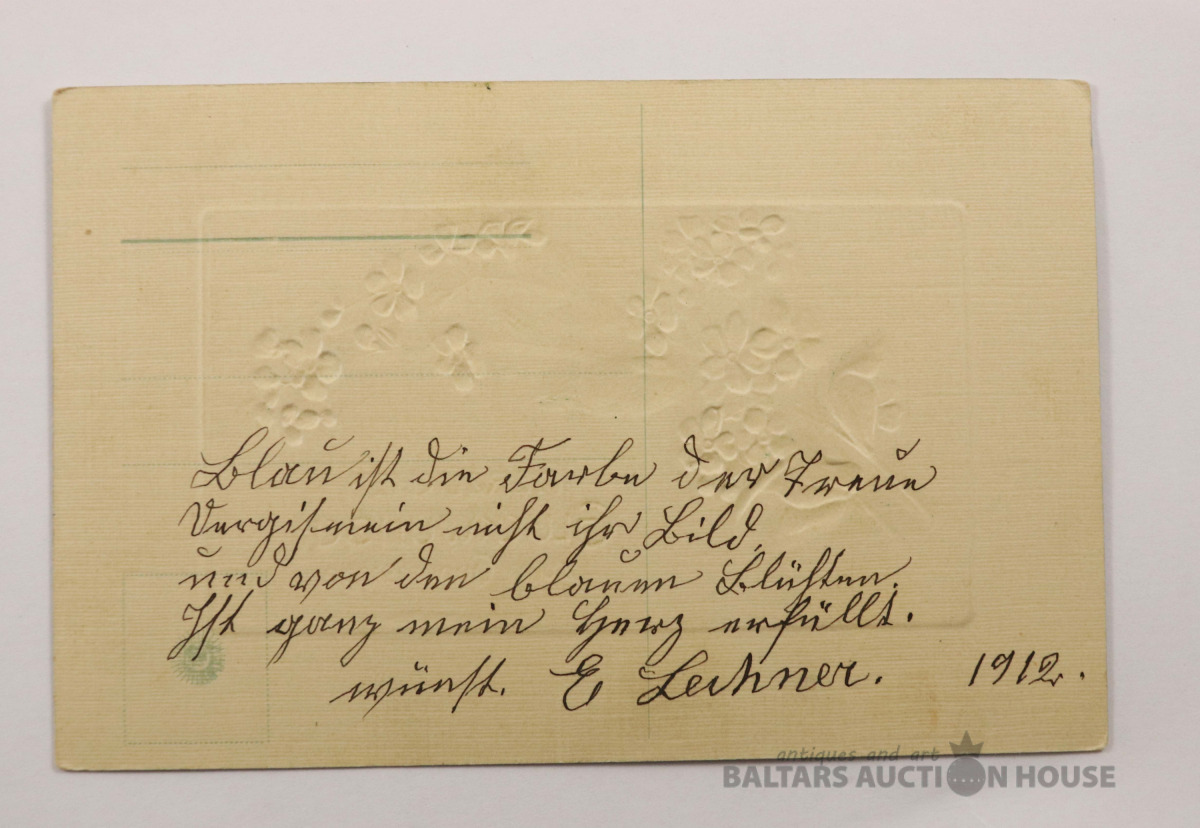 Blau ist die Farbe der Treue
Vergissmein nicht ihr Bild,
und von den blauen Blühten.
Ist ganz mein Herz erfüllt.
wünst. E Lechner. 1912.
antiques and art
BALTARS AUCTION HOUSE